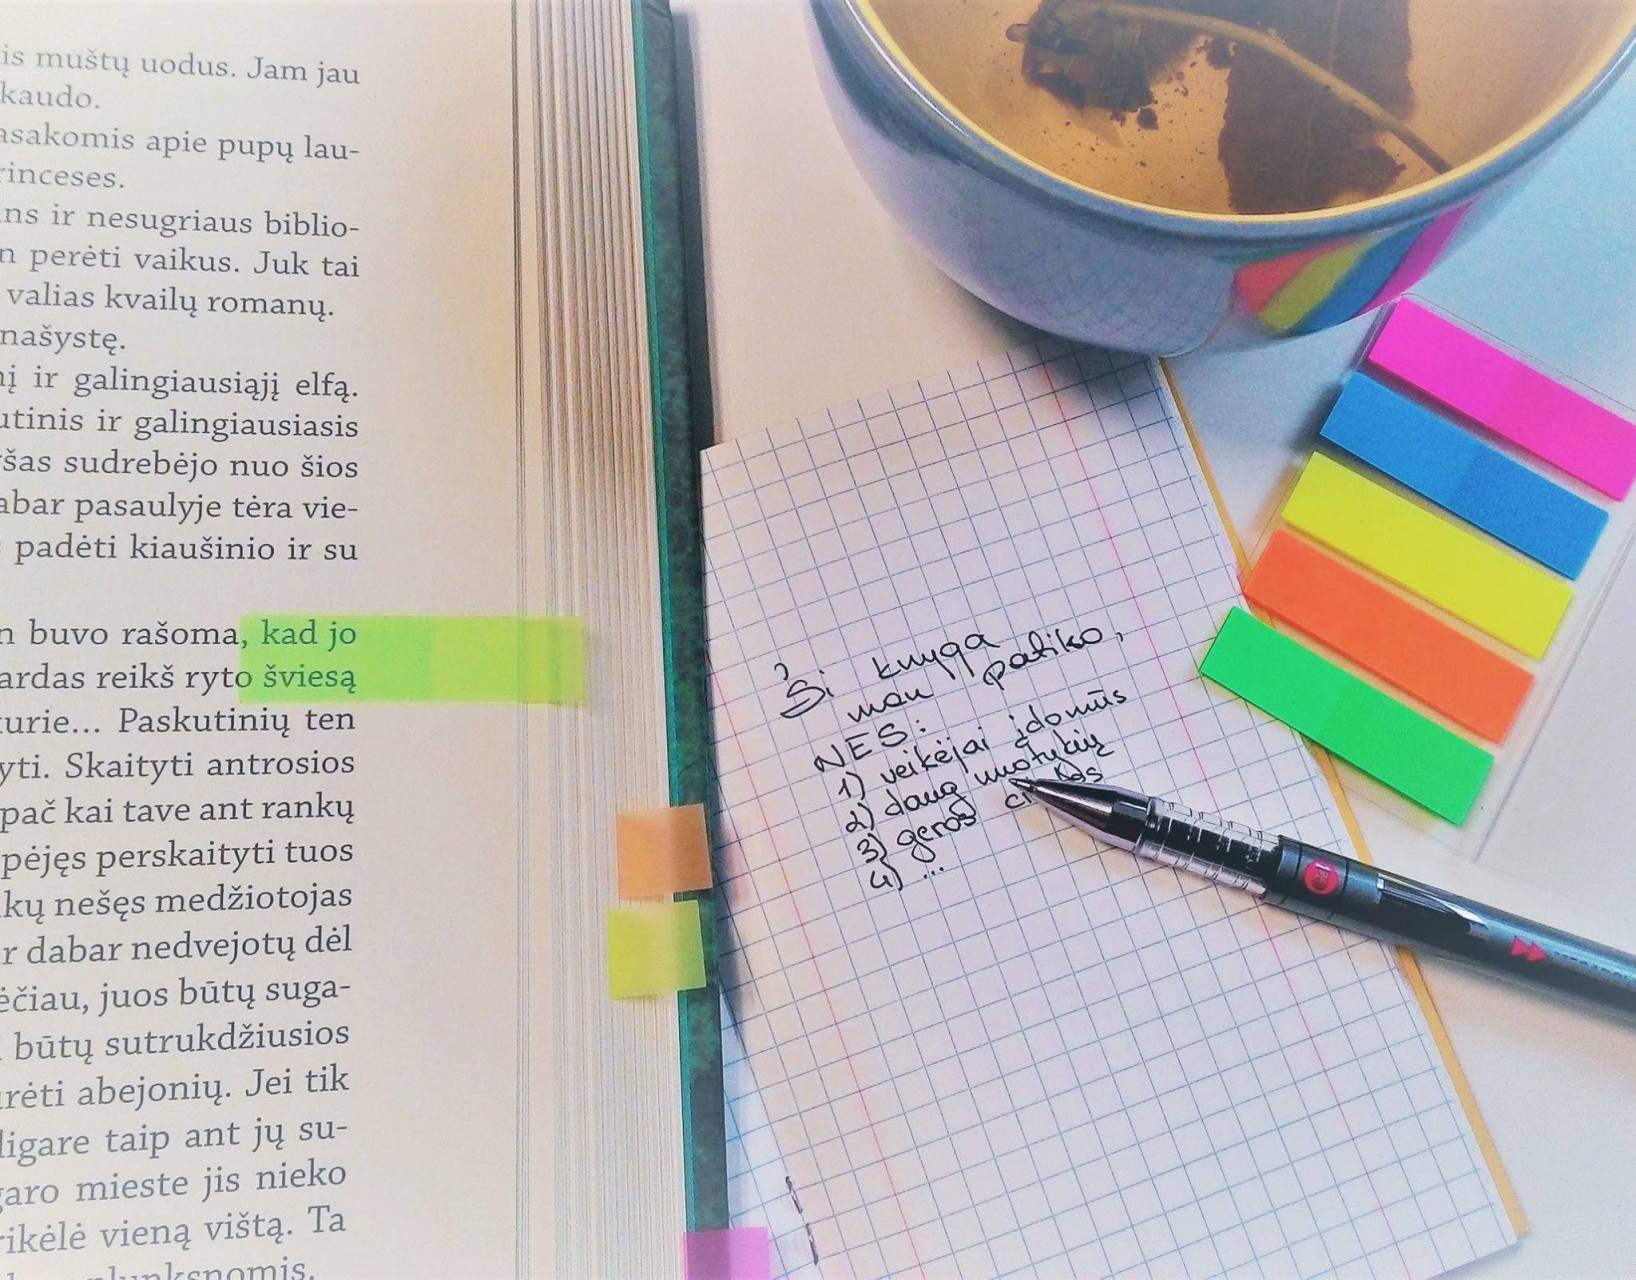 is muštų uodus. Jam jau
kaudo.
asakomis apie pupų lau-
rinceses.
ins ir nesugriaus biblio-
n perėti vaikus. Juk tai
valias kvailų romanų.
našystę.
nį ir galingiausiąjį elfą.
utinis ir galingiausiasis
ršas sudrebėjo nuo šios
abar pasaulyje tėra vie-
padėti kiaušinio ir su
n buvo rašoma, kad jo
ardas reikš ryto šviesą
kurie... Paskutinių ten
yti. Skaityti antrosios
pač kai tave ant rankų
pėjęs perskaityti tuos
kų nešęs medžiotojas
r dabar nedvejotų dėl
ėčiau, juos būtų suga-
būtų sutrukdžiusios
urėti abejonių. Jei tik
ligare taip ant jų su-
garo mieste jis nieko
rikėlė vieną vištą. Ta
plunksnomis.
Ši knyga
man patiko,
NES:
1) veikėjai įdomūs
2) daug nuotykių
3) geros
4) ...